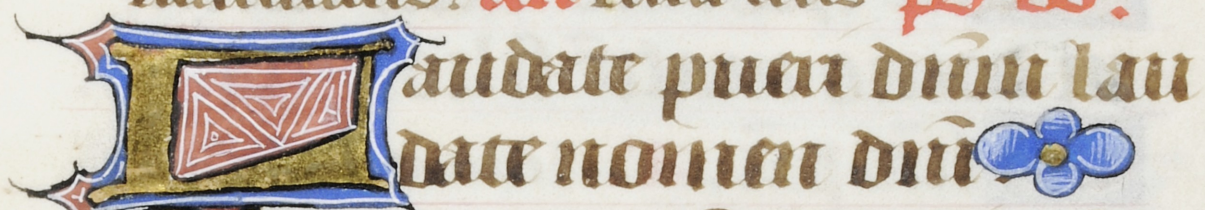 Laudate pueri dn̄m lau
date nomen dnī